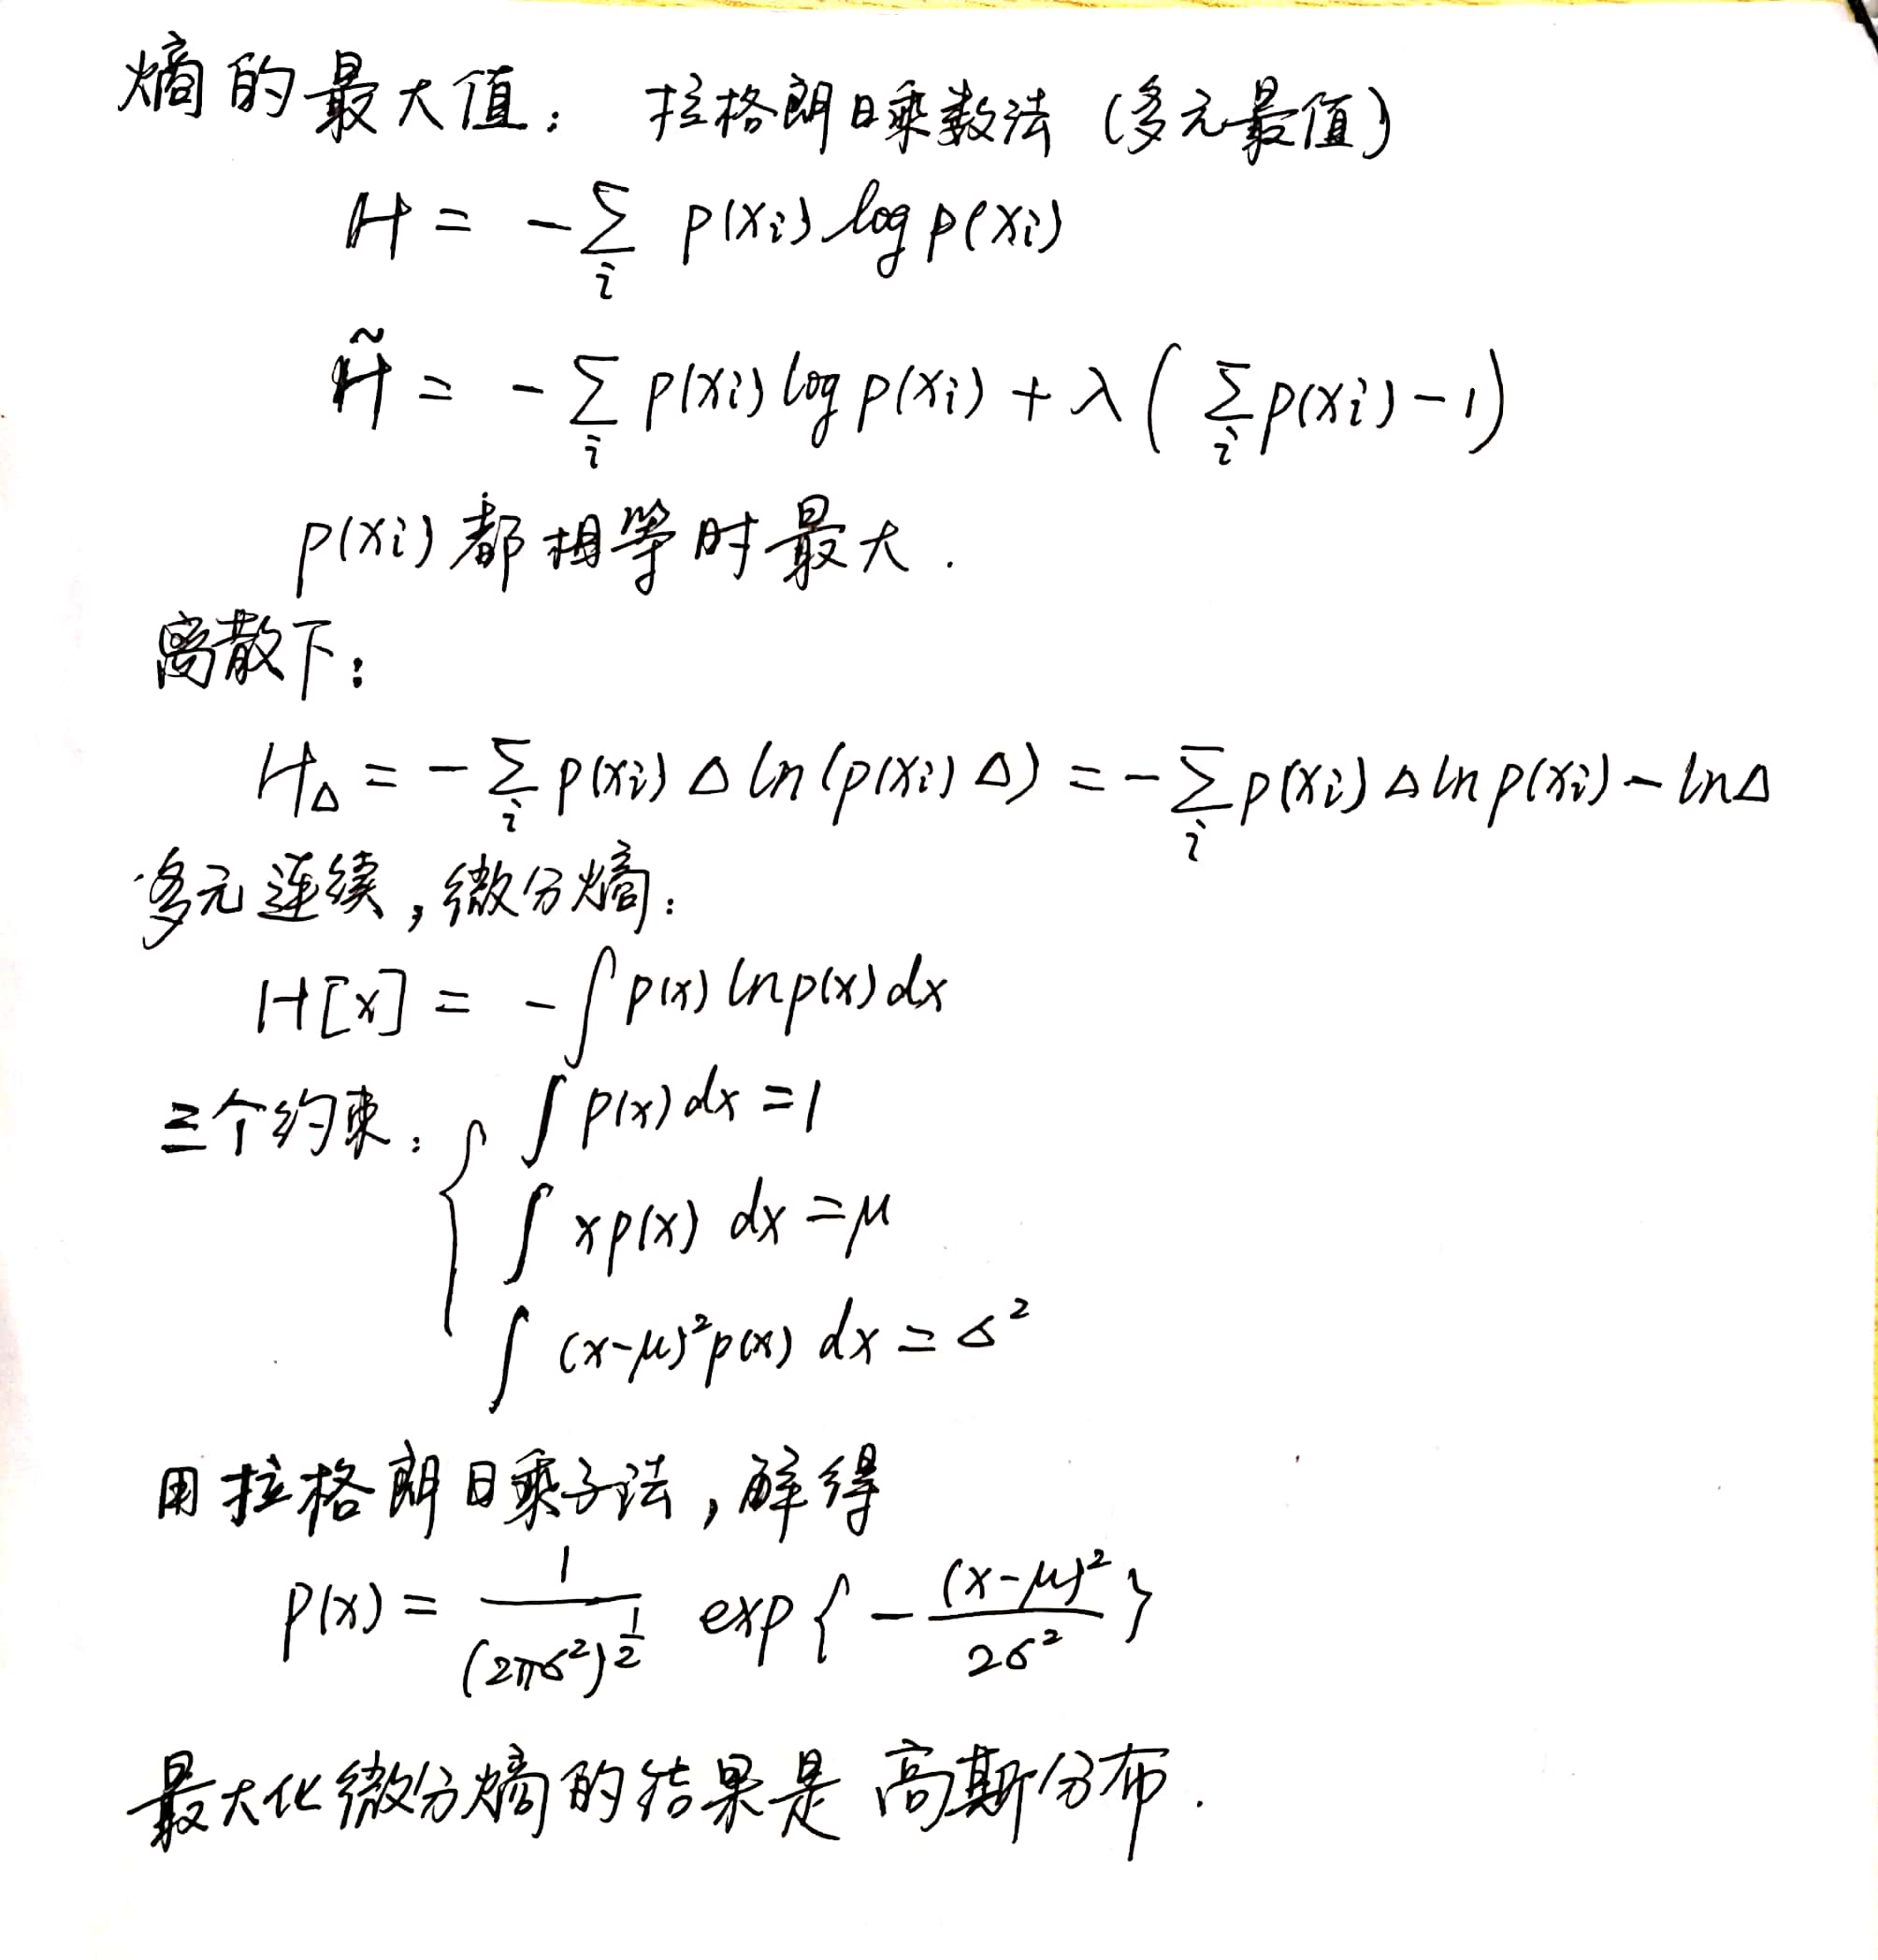 熵的最大值： 拉格朗日乘数法 (多元最值)
H = -∑_i p(x_i) log p(x_i)
H̃ = -∑_i p(x_i) log p(x_i) + λ( ∑_i p(x_i) - 1)
p(x_i) 都相等时最大.
离散下：
H_Δ = -∑_i p(x_i) Δ ln(p(x_i) Δ) = -∑_i p(x_i) Δ ln p(x_i) - lnΔ
多元连续，微分熵：
H[x] = -∫ p(x) ln p(x) dx
三个约束： { ∫ p(x) dx = 1
∫ x p(x) dx = μ
∫ (x-μ)² p(x) dx = σ²
用拉格朗日乘子法，解得
p(x) = 1/(2πσ²)^{1/2} exp{ -(x-μ)²/2σ² }
最大化微分熵的结果是高斯分布.